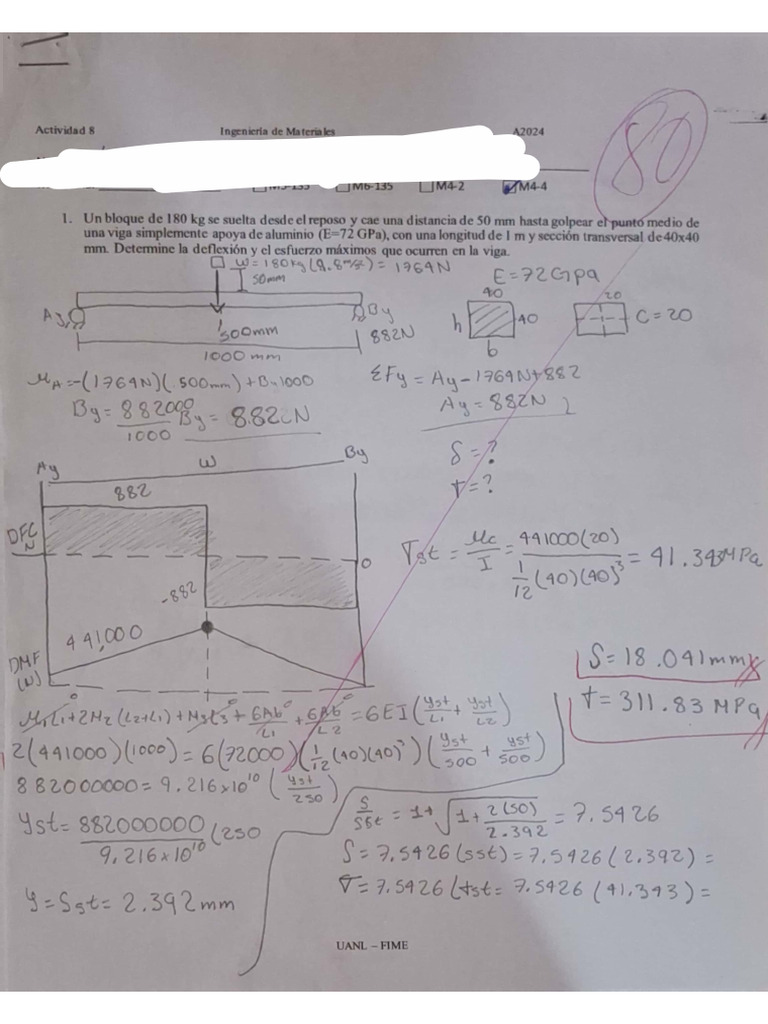 Actividad 8 Ingeniería de Materiales A2024
80
M6-135 M4-2 M4-4
1. Un bloque de 180 kg se suelta desde el reposo y cae una distancia de 50 mm hasta golpear el punto medio de
una viga simplemente apoya de aluminio (E=72 GPa), con una longitud de 1 m y sección transversal de 40x40
mm. Determine la deflexión y el esfuerzo máximos que ocurren en la viga.
W=180kg(9.8m/s²)=1764N
50mm
E=72Gpa
40
20
Ay
By
h
40
C=20
b
500mm
882N
1000 mm
MA=-(1764N)(.500mm)+By1000
ΣFy=Ay-1764N+882
By=882000/1000 By=8.82cN
Ay=882N
Ay W By
δ=?
882
σ=?
DFC
N
0
-882
σst=Mc/I=441000(20)/(1/12(40)(40)³)=41.343MPa
441,000
DMF
(N)
S=18.041mm
σ=311.83MPa
M1L1+2M2(L2+L1)+M3L3+6Ab/L1+6Ab/L2=6EI(yst/L1+yst/L2)
2(441000)(1000)=6(72000)(1/12(40)(40)³)(yst/500+yst/500)
882000000=9.216x10¹⁰(yst/250)
yst=882000000/9.216x10¹⁰(250
S/Sst=1+√1+2(50)/2.392=7.5426
S=7.5426(sst)=7.5426(2.392)=
σ=7.5426(σst=7.5426(41.343)=
y=Sst=2.392mm
UANL – FIME